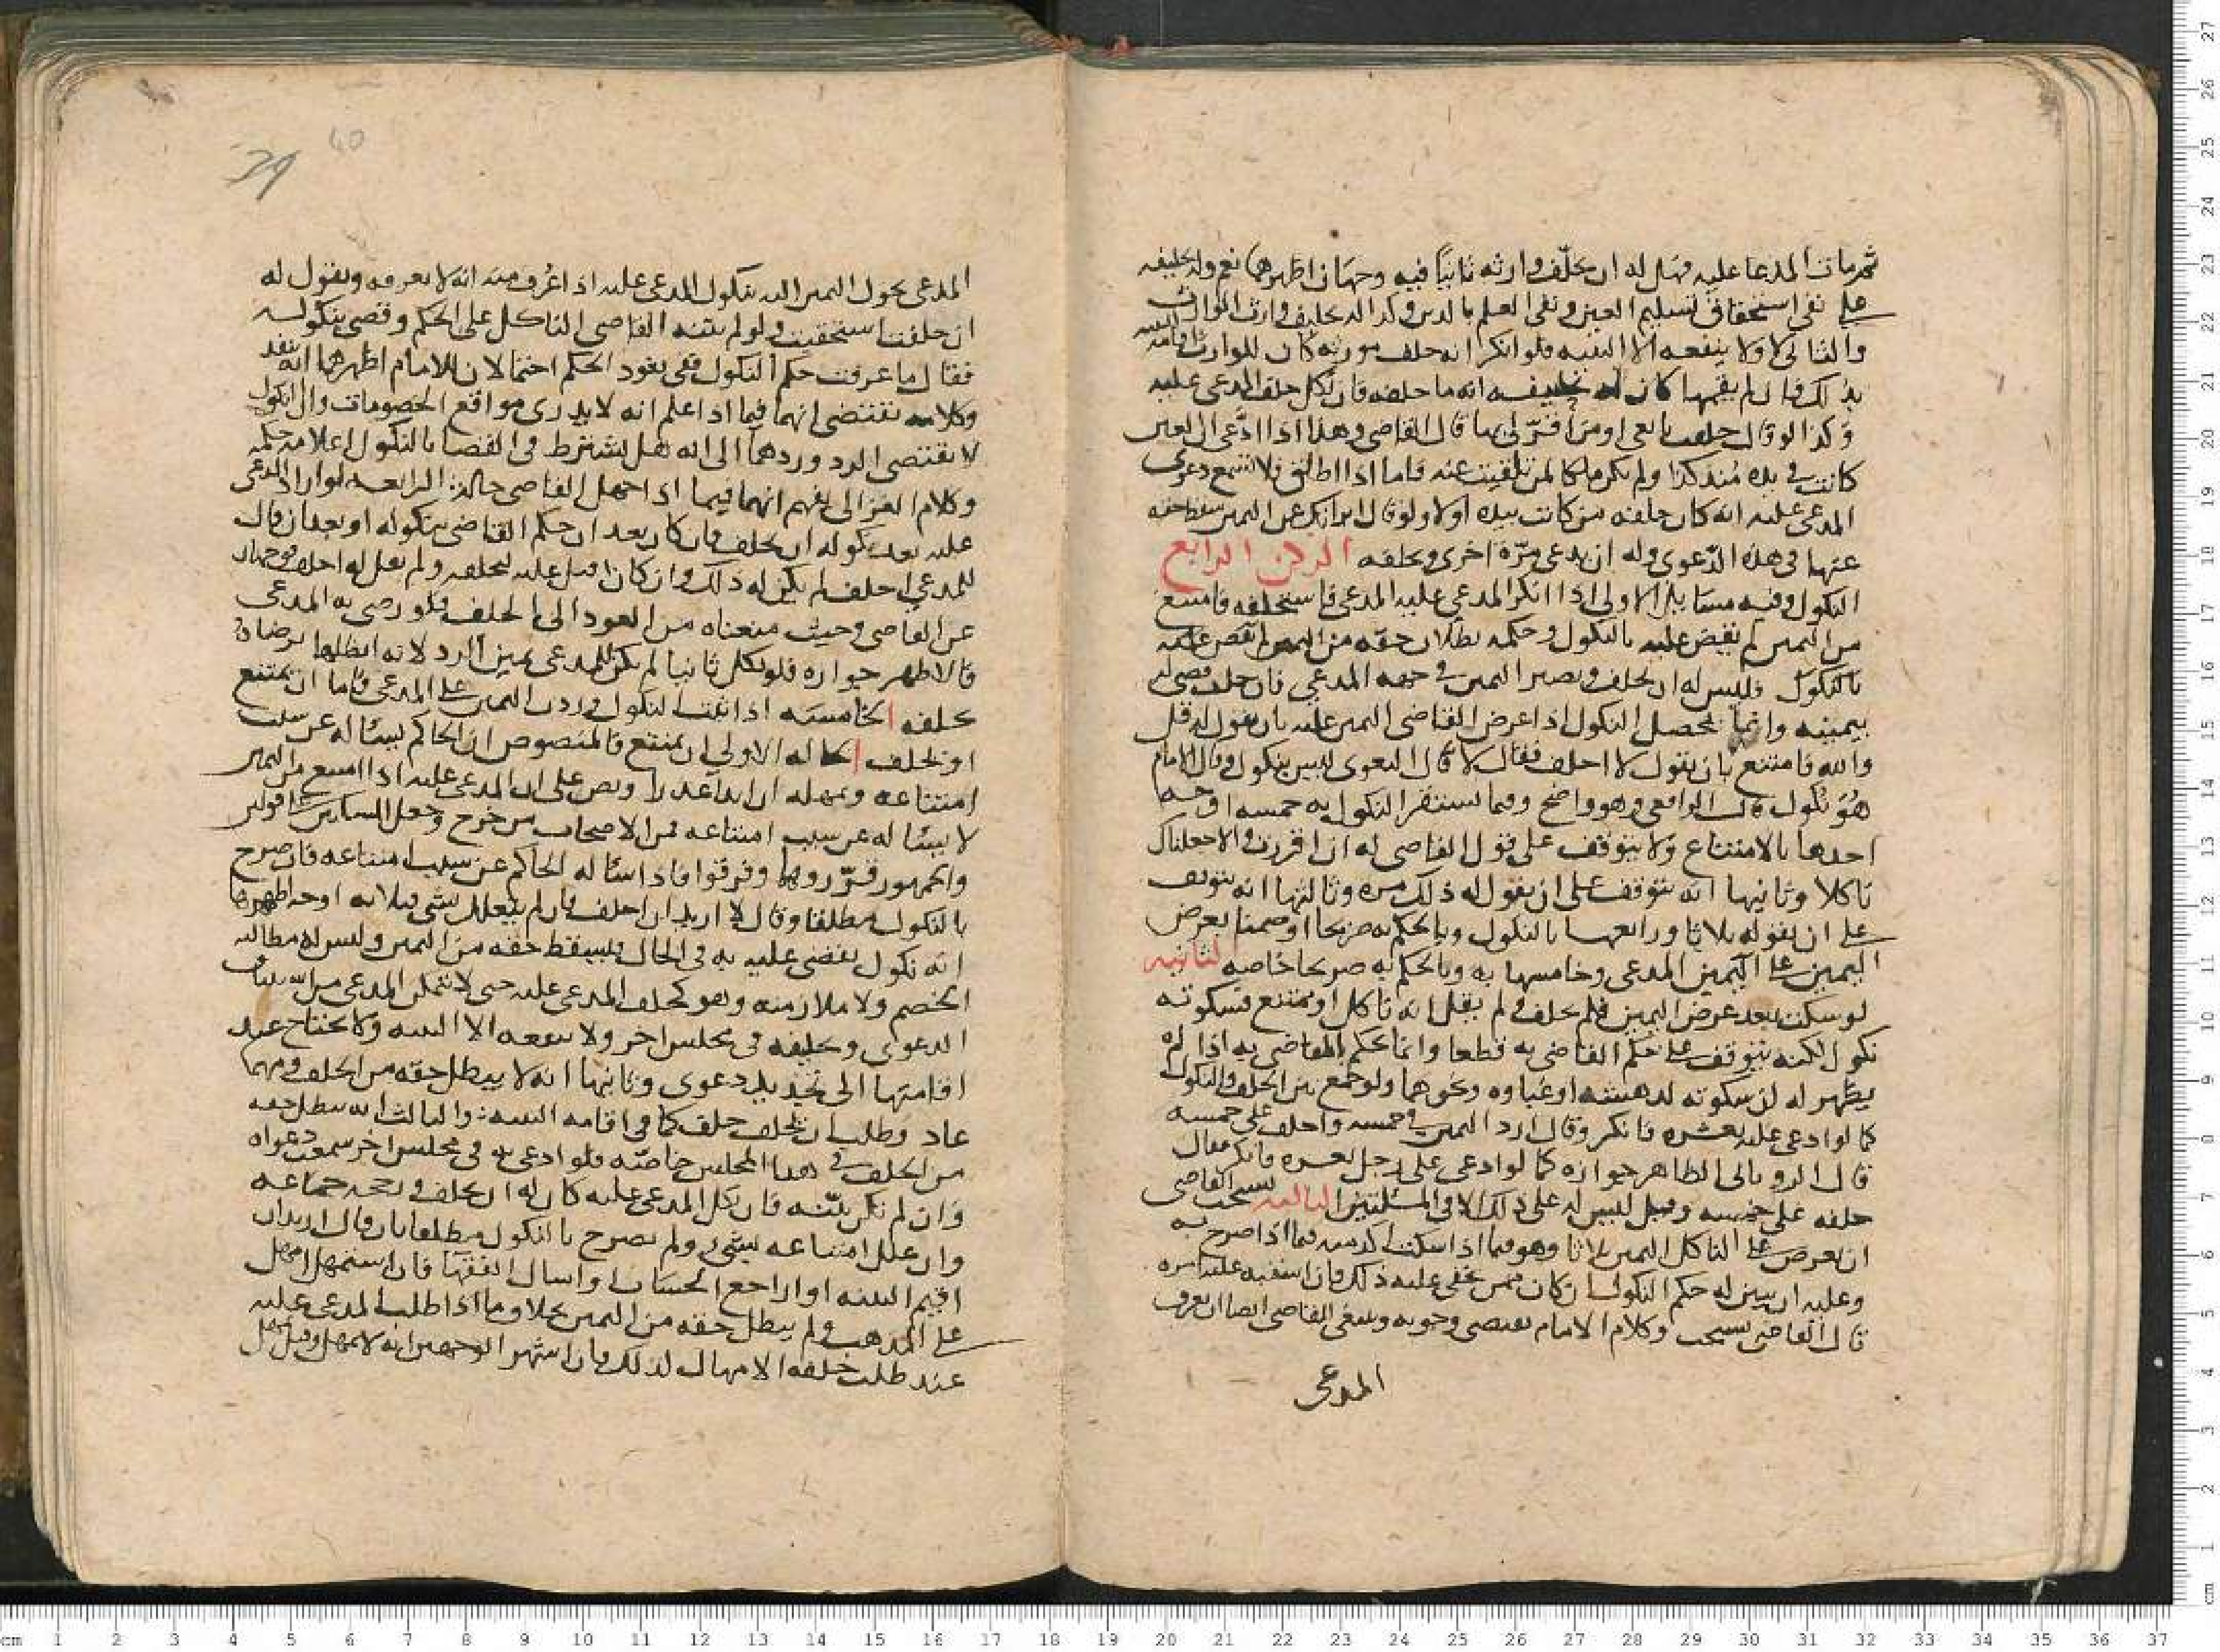 ثم مات المدعا عليه فهل له ان يحلف وارثه ثانيا فيه وجهان اظهرهما نعم وله تحليفه
على نفي استحقاق تسليم العين ونفي العلم بالدين وكذا له تحليف وارث الوارث
والثاني لا ولا ينفعه الا البينه فلو انكر انه حلف مورثه كان للوارث اقامه البينه
بذلك فان لم يقمها كان له تحليفه انه ما حلفه فان نكل حلف المدعى عليه
وكذا لو قال حلفت بايعي او من اقر لي بها قال القاضي وهذا اذا ادعى ان العين
كانت في يده منذ كذا ولم يكن ملكا لمن تلقيت عنه فاما اذا اطلق فلا تسمع دعوى
المدعى عليه انه كان حلفه من كانت بيده اولا ولو قال ابراتك عن اليمين سقط حقه
عنها في هذه الدعوى وله ان يدعي مرة اخرى ويحلفه الركن الرابع
النكول وفيه مسايل الاولى اذا انكر المدعى عليه المدعى فاستحلفه فامتنع
من اليمين لم يقض عليه بالنكول وحكمه بطلان حقه من اليمين لم نقض عليه
بالنكول فليس له ان يحلف وتصير اليمين في جهه المدعي فان حلف قضى له
بيمينه وانما يحصل النكول اذا عرض القاضي اليمين عليه بان يقول له قل
والله فامتنع بان يقول لا احلف فقال لا قال البغوي ليس بنكول وقال الامام
هو نكول قال الرافعي وهو واضح وفيما يستقر النكول به خمسه اوجه
احدها بالامتناع ولا يتوقف على قول القاضي له ان اقررت والا جعلناك
ناكلا وثانيها انه يتوقف على ان يقول له ذلك مره وثالثها انه يتوقف
على ان يقوله ثلاثا ورابعها بالنكول وبالحكم به صريحا او ضمنا بعرض
اليمين على اليمين المدعي وخامسها به وبالحكم به صريحا خاصه الثانيه
لو سكت بعد عرض اليمين فلم يحلف ولم يقل انه ناكل او ممتنع فسكوته
نكول لكنه يتوقف على حكم القاضي به قطعا وانما يحكم القاضي به اذا لم
يظهر له ان سكوته لدهشته او غباوه ونحوهما ولو جمع بين الحلف والنكول
كما لو ادعى عليه بعشره فانكر وقال ارد اليمين في خمسه واحلف على خمسه
قال الروياني الظاهر جوازه كما لو ادعى على رجل بعشره فانكر فقال
حلفه على خمسه وقيل ليس له على ذلك الا في المسئلتين الثالثه يستحب للقاضي
ان يعرض على الناكل اليمين ثلاثا وهو فيما اذا سكت اكد منه فيما اذا صرح به
وعليه ان يبين له حكم النكول ان كان ممن يخفى عليه ذلك فان اشتبه عليه امره
قال القاضي يستحب وكلام الامام يقتضي وجوبه وينبغي للقاضي ايضا ان يعرف
المدعي
39
40
المدعي تحول اليمين اليه بنكول المدعى عليه اذا عرف منه انه لا يعرفه ويقول له
ان حلفت استحقيت ولو لم ينبه القاضي الناكل على الحكم وقضى بنكوله
فقال ما عرفت حكم النكول ففي نفوذ الحكم احتمالان للامام اظهرهما انه ينفذ
وكلامه يقتضي انهما فيما اذا علم انه لا يدري مواقع الخصومات وان النكول
لا يقتضي الرد وردهما الى انه هل يشترط في القضا بالنكول اعلامه حكمه
وكلام الغزالي يفهم انهما فيما اذا جهل القاضي حاله الرابعه لو اراد المدعى
عليه بعد نكوله ان يحلف فان كان بعد ان حكم القاضي بنكوله او بعد ان قال
للمدعي احلف لم يكن له ذلك وان كان اقبل عليه ليحلفه ولم يقل له احلف فوجهان
عن القاضي وحيث منعناه من العود الى الحلف فلو رضي به المدعي
فالاظهر جوازه فلو نكل ثانيا لم يكن للمدعي يمين الرد لانه ابطلها برضاه
بحلفه الخامسه اذا ثبت النكول وردت اليمين على المدعي فاما ان يمتنع
او يحلف الحاله الاولى ان يمتنع فالمنصوص ان الحاكم يسأله عن سبب
امتناعه ويمهله ان ابدا عذرا ونص على ان المدعى عليه اذا امتنع من اليمين
لا يسأله عن سبب امتناعه فمن الاصحاب من خرج وجعل المسالتين على قولين
والجمهور قرروهما وفرقوا فاذا سأله الحاكم عن سبب امتناعه فان صرح
بالنكول مطلقا وقال لا اريد ان احلف فان لم يتعلل بشي فثلاثه اوجه اظهرها
انه نكول يقضى عليه به في الحال فيسقط حقه من اليمين وليس له مطالبه
الخصم ولا ملازمته وهو كحلف المدعى عليه حتى لا يتمكن المدعي من استيناف
الدعوى وتحليفه في مجلس اخر ولا ينفعه الا البينه ولا يحتاج عند
اقامتها الى تجديد دعوى وثانيها انه لا يبطل حقه من الحلف ومهما
عاد وطلب ان يحلف حلف كما في اقامه البينه والثالث انه يبطل حقه
من الحلف في هذا المجلس خاصة فلو ادعى به في مجلس اخر سمعت دعواه
وان لم تكن بينه فان نكل المدعى عليه كان له ان يحلف ورجحه جماعه
وان علل امتناعه بشي ولم يصرح بالنكول مطلقا بان قال اريد ان
اقيم البينه او اراجع الحساب او اسال الفقها فان استمهل امهل
على المذهب ولم يبطل حقه من اليمين بخلاف ما اذا طلب المدعى عليه
عند طلب حلفه الامهال لذلك فان اشهر الوجهين انه لا يمهل وقيل يمهل